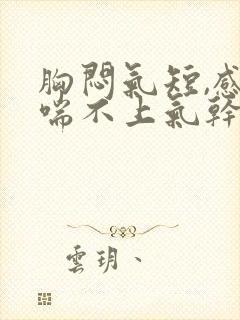 胸悶氣短,感
喘不上氣幹
雲玥、